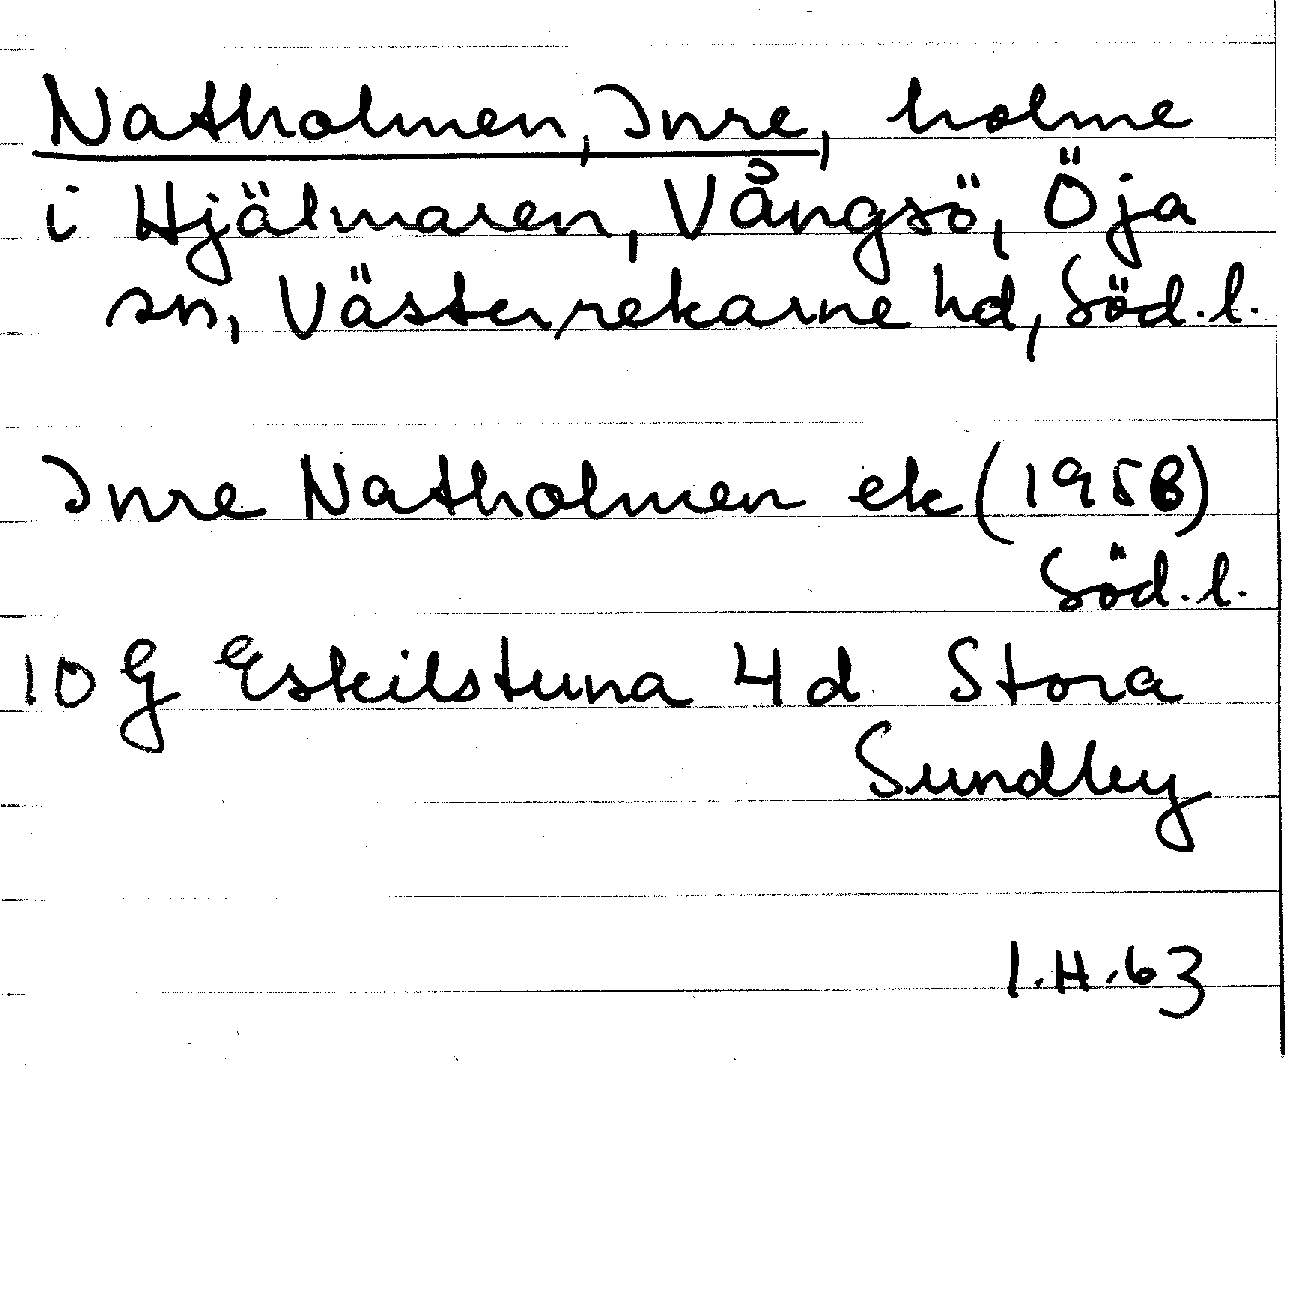 Natholmen, Inre, holme
i Hjälmaren, Vångsö, Öja
sn, Västerrekarne hd, Söd.l.
Inre Natholmen ek (1958)
Söd.l.
10 G Eskilstuna 4 d Stora
Sundby
I.H.63